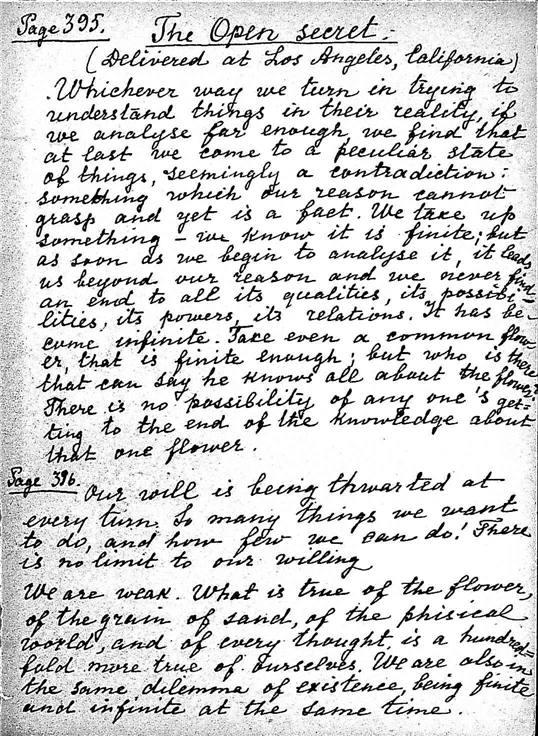 Page 395.
The Open secret.-
(Delivered at Los Angeles, California)
Whichever way we turn in trying to
understand things in their reality, if
we analyse far enough, we find that
at last we come to a peculiar state
of things, seemingly a contradiction:
something which our reason cannot
grasp and yet is a fact. We take up
something – we know it is finite; but
as soon as we begin to analyse it, it leads
us beyond our reason and we never find
an end to all its qualities, its possibi-
lities, its powers, its relations. It has be-
come infinite. Take even a common flow-
er, that is finite enough; but who is there
that can say he knows all about the flower?
There is no possibility of any one's get=
ting to the end of the knowledge about
that one flower.
Page 396.
Our will is being thwarted at
every turn. So many things we want
to do, and how few we can do! There
is no limit to our willing
We are weak. What is true of the flower,
of the grain of sand, of the phisical
world, and of every thought, is a hundred=
fold more true of ourselves. We are also in
the same dilemma of existence, being finite
and infinite at the same time.